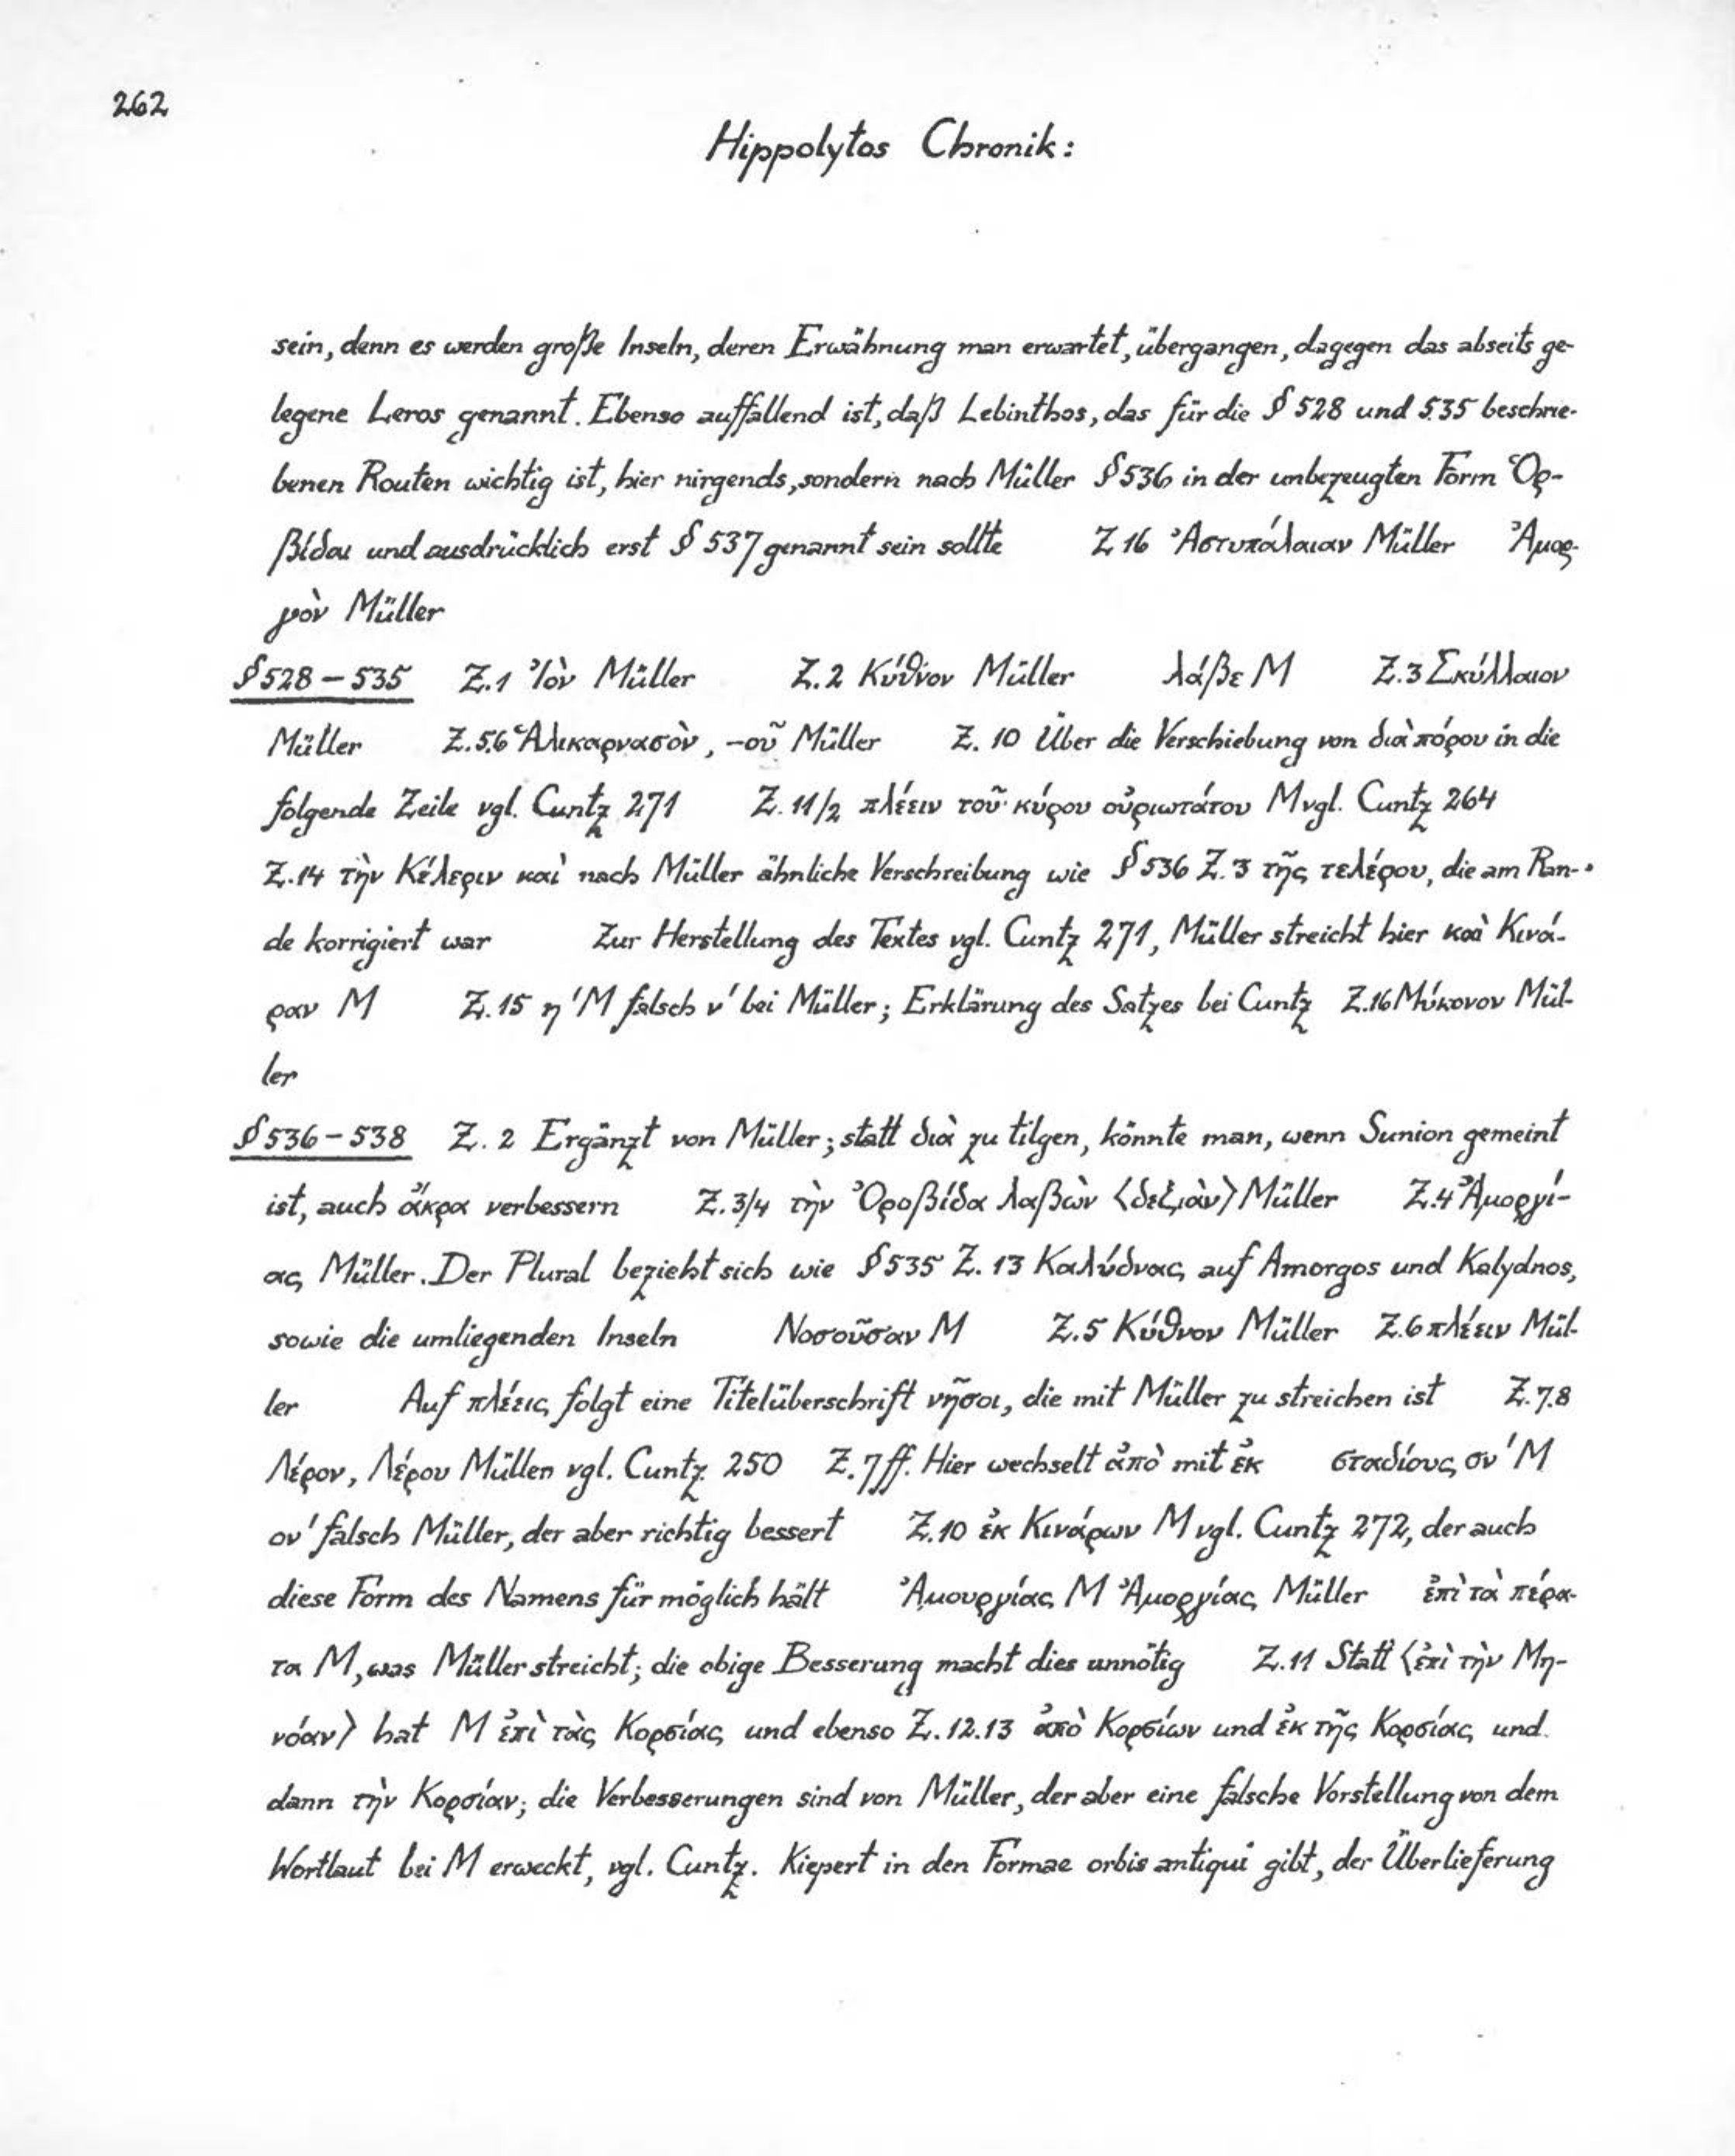 262
Hippolytos Chronik:
sein, denn es werden große Inseln, deren Erwähnung man erwartet, übergangen, dagegen das abseits ge-
legene Leros genannt. Ebenso auffallend ist, daß Lebinthos, das für die § 528 und 535 beschrie-
benen Routen wichtig ist, hier nirgends, sondern nach Müller § 536 in der unbezeugten Form Ὀρ-
βίδαι und ausdrücklich erst § 537 genannt sein sollte Z 16 Ἀστυπάλαιαν Müller Ἀμορ-
γὸν Müller
§ 528 – 535 Z.1 Ἰὸν Müller Z.2 Κύθνον Müller λάβε M Z.3 Σκύλλαιον
Müller Z.5.6 Ἁλικαρνασὸν, –οῦ Müller Z. 10 Über die Verschiebung von διὰ πόρου in die
folgende Zeile vgl. Cuntz 271 Z. 11/2 πλέειν τοῦ κύρου οὐριωτάτου M vgl. Cuntz 264
Z.14 τὴν Κέλεριν καὶ nach Müller ähnliche Verschreibung wie § 536 Z. 3 τῆς τελέρου, die am Ran-
de korrigiert war Zur Herstellung des Textes vgl. Cuntz 271, Müller streicht hier καὶ Κινά-
ραν M Z. 15 η' M falsch ν' bei Müller; Erklärung des Satzes bei Cuntz Z.16 Μύκονον Mül-
ler
§ 536 – 538 Z. 2 Ergänzt von Müller; statt διὰ zu tilgen, könnte man, wenn Sunion gemeint
ist, auch ἄκρα verbessern Z.3/4 τὴν Ὀροβίδα λαβὼν ⟨δεξιὰν⟩ Müller Z.4 Ἀμοργί-
ας Müller. Der Plural bezieht sich wie § 535 Z. 13 Καλύδνας auf Amorgos und Kalydnos,
sowie die umliegenden Inseln Νοσοῦσαν M Z.5 Κύθνον Müller Z.6 πλέειν Mül-
ler Auf πλέεις folgt eine Titelüberschrift νῆσοι, die mit Müller zu streichen ist Z.7.8
Λέρον, Λέρου Müllen vgl. Cuntz 250 Z.7ff. Hier wechselt ἀπὸ mit ἐκ σταδίους σν' M
ον' falsch Müller, der aber richtig bessert Z.10 ἐκ Κινάρων M vgl. Cuntz 272, der auch
diese Form des Namens für möglich hält Ἀμουργίας M Ἀμοργίας Müller ἐπὶ τὰ πέρα-
τα M, was Müller streicht; die obige Besserung macht dies unnötig Z.11 Statt ⟨ἐπὶ τὴν Μη-
νόαν⟩ hat M ἐπὶ τὰς Κορσίας und ebenso Z. 12.13 ἀπὸ Κορσίων und ἐκ τῆς Κορσίας und
dann τὴν Κορσίαν; die Verbesserungen sind von Müller, der aber eine falsche Vorstellung von dem
Wortlaut bei M erweckt, vgl. Cuntz. Kiepert in den Formae orbis antiqui gibt, der Überlieferung